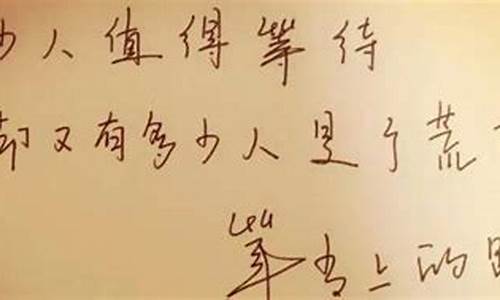 少人值得等待
却又有多少人是了荒
等当上的